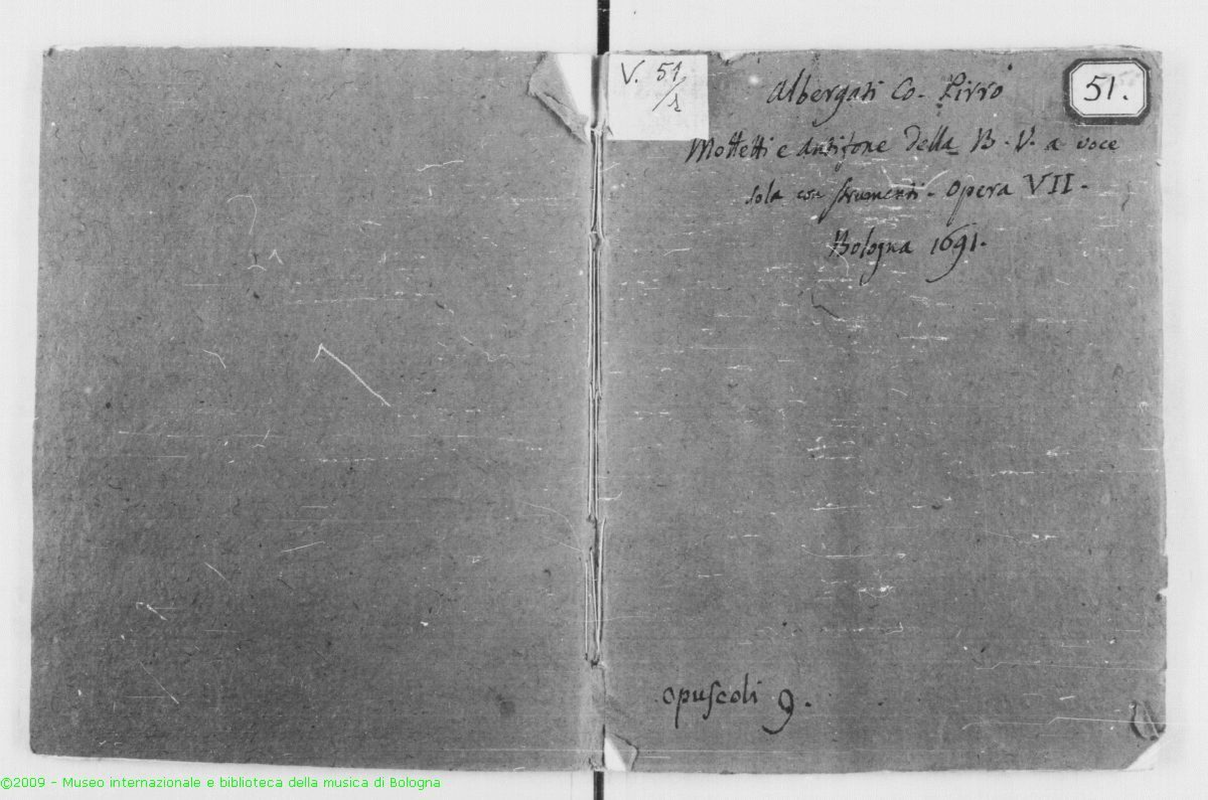 V. 51
/1
51.
Albergati Co. Pirro
Mottetti e Antifone della B. V. a voce
sola con strumenti. Opera VII.
Bologna 1691.
opuscoli 9.
©2009 - Museo internazionale e biblioteca della musica di Bologna